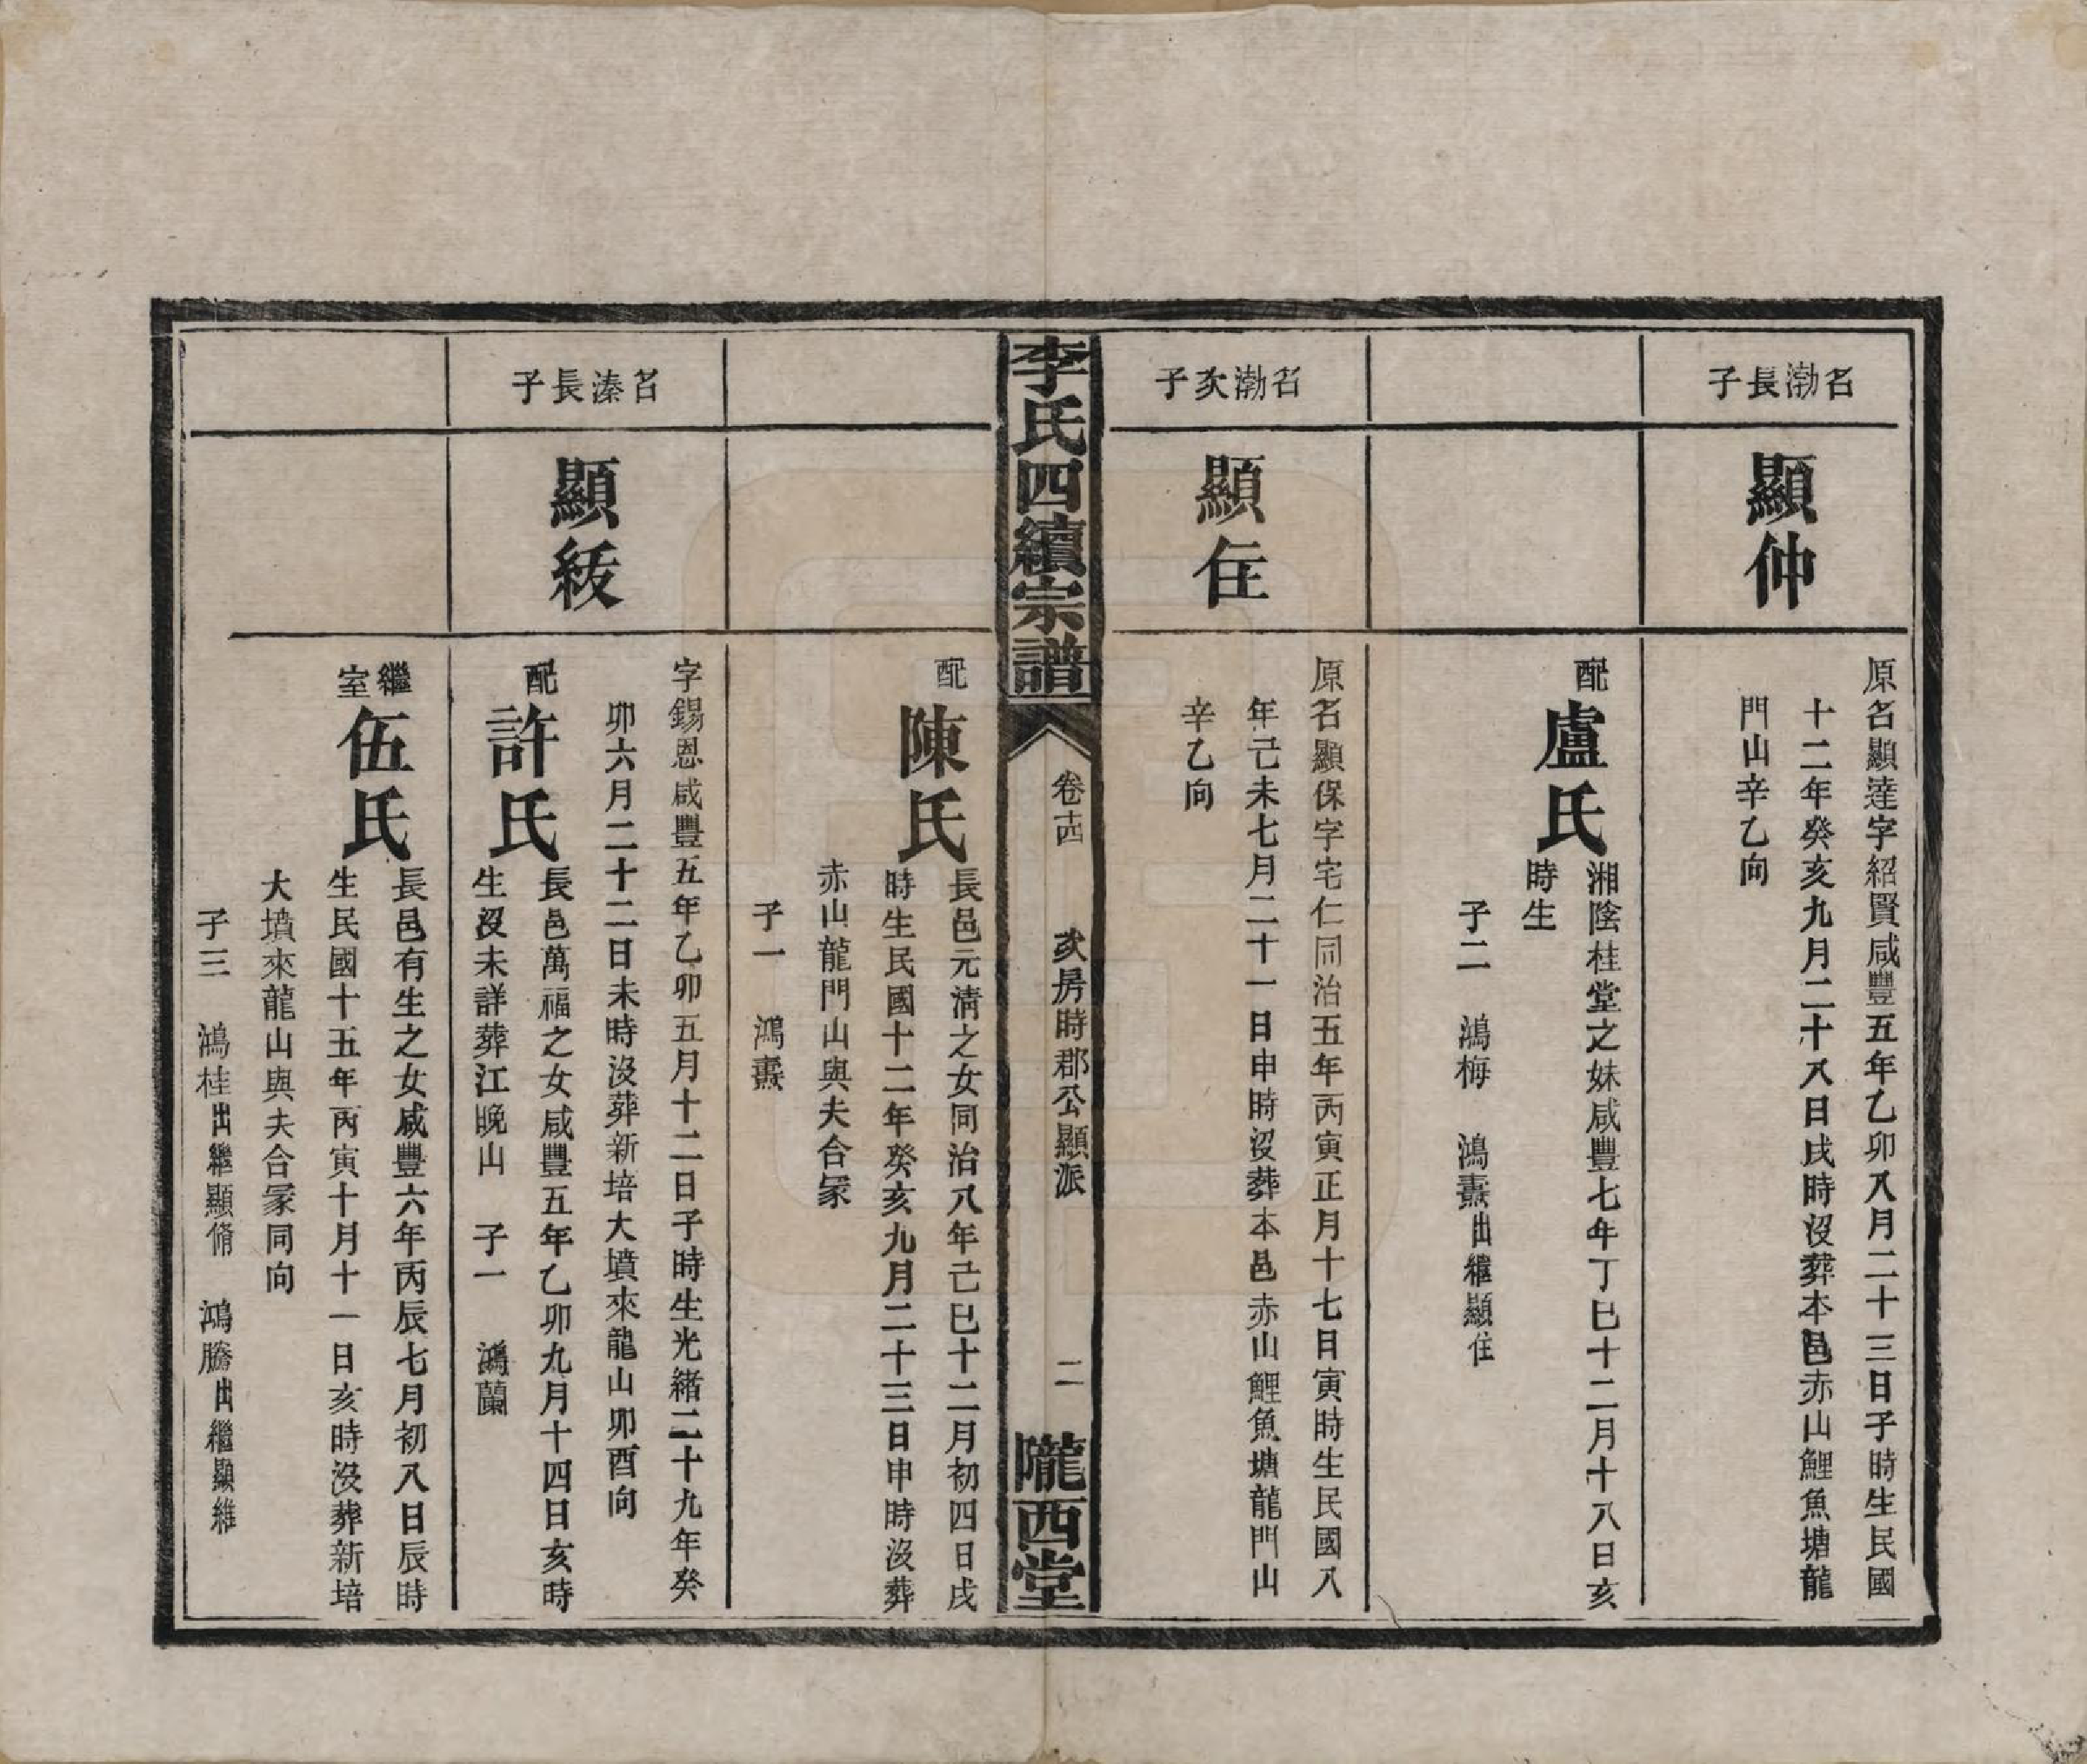 名渤長子
顯仲
原名顯達字紹賢咸豐五年乙卯八月二十三日子時生民國
十二年癸亥九月二十八日戌時沒葬本邑赤山鯉魚塘龍
門山辛乙向
配
盧氏
湘陰桂堂之妹咸豐七年丁巳十二月十八日亥
時生
子二 鴻梅 鴻燾出繼顯住
名渤次子
顯住
原名顯保字宅仁同治五年丙寅正月十七日寅時生民國八
年己未七月二十一日申時沒葬本邑赤山鯉魚塘龍門山
辛乙向
李氏四續宗譜
卷十四 次房時郡公顯派 二
隴西堂
配
陳氏
長邑元清之女同治八年己巳十二月初四日戌
時生民國十二年癸亥九月二十三日申時沒葬
赤山龍門山與夫合冢
子一 鴻燾
名溱長子
顯綏
字錫恩咸豐五年乙卯五月十二日子時生光緒二十九年癸
卯六月二十二日未時沒葬新培大墳來龍山卯酉向
配
許氏
長邑萬福之女咸豐五年乙卯九月十四日亥時
生沒未詳葬江晚山 子一 鴻蘭
繼室
伍氏
長邑有生之女咸豐六年丙辰七月初八日辰時
生民國十五年丙寅十月十一日亥時沒葬新培
大墳來龍山與夫合冢同向
子三 鴻桂出繼顯脩 鴻騰出繼顯維